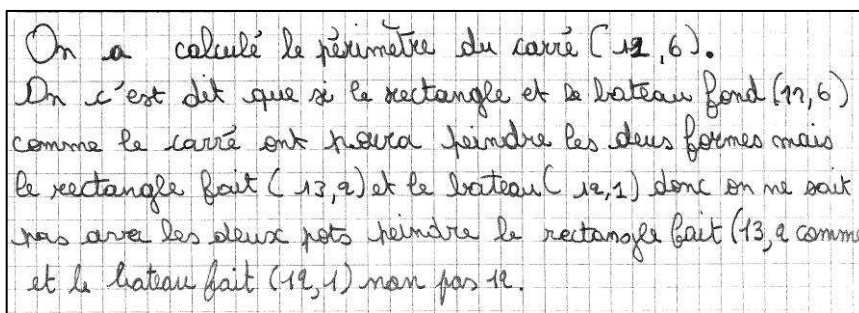 On a calculé le périmètre du carré (12,6).
On c'est dit que si le rectangle et le bateau fond (12,6)
comme le carré ont poura peindre les deus formes mais
le rectangle fait (13,2) et le bateau (12,1) donc on ne sait
pas avec les deux pots peindre le rectangle fait (13,2 comme
et le bateau fait (12,1) non pas 12.